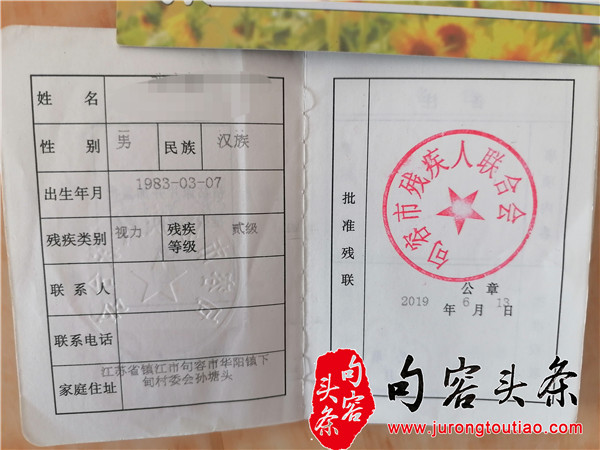 姓 名
性 别 男 民族 汉族
出生年月 1983-03-07
残疾类别 视力 残疾等级 贰级
联系人
联系电话
家庭住址 江苏省镇江市句容市华阳镇下
甸村委会孙塘头
批准残联
句容市残疾人联合会
公章
2019 年 6 月 13 日
句容头条
句容头条
www.jurongtoutiao.com